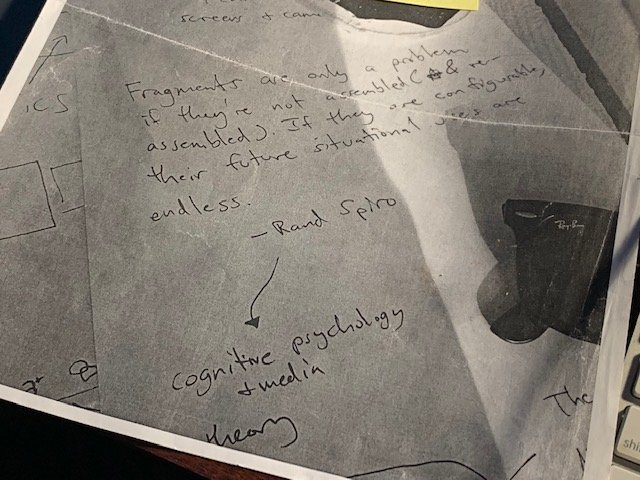 screens + cam
Fragments are only a problem
if they're not assembled (& re-
assembled). If they are configurable,
their future situational uses are
endless.
- Rand Spiro
cognitive psychology
+ media
theory
ICS
Ray-Ban
The
shi